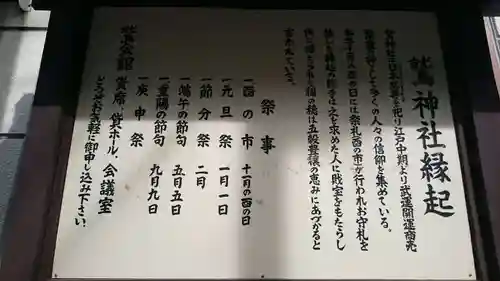 鷲神社縁起
当神社は日本武尊を祀り江戸中期より武運開運商売
繁盛の神として多くの人々の信仰を集めている。
毎年十一月の酉の日には祭礼酉の市が行われお守札を
捺した縁起の熊手は穴を求めた人に財宝をもたらし
供に頒たる唐の稲の穂は五穀豊穣の恵みにあづかると
言われている。
祭事
一酉の市 十一月の酉の日
一元旦祭 一月一日
一節分祭 二月
一端午の節句 五月五日
一重陽の節句 九月九日
一庚申祭
鷲会館 貸席、貸ホール、会議室
どうぞお気軽に御申し込み下さい。